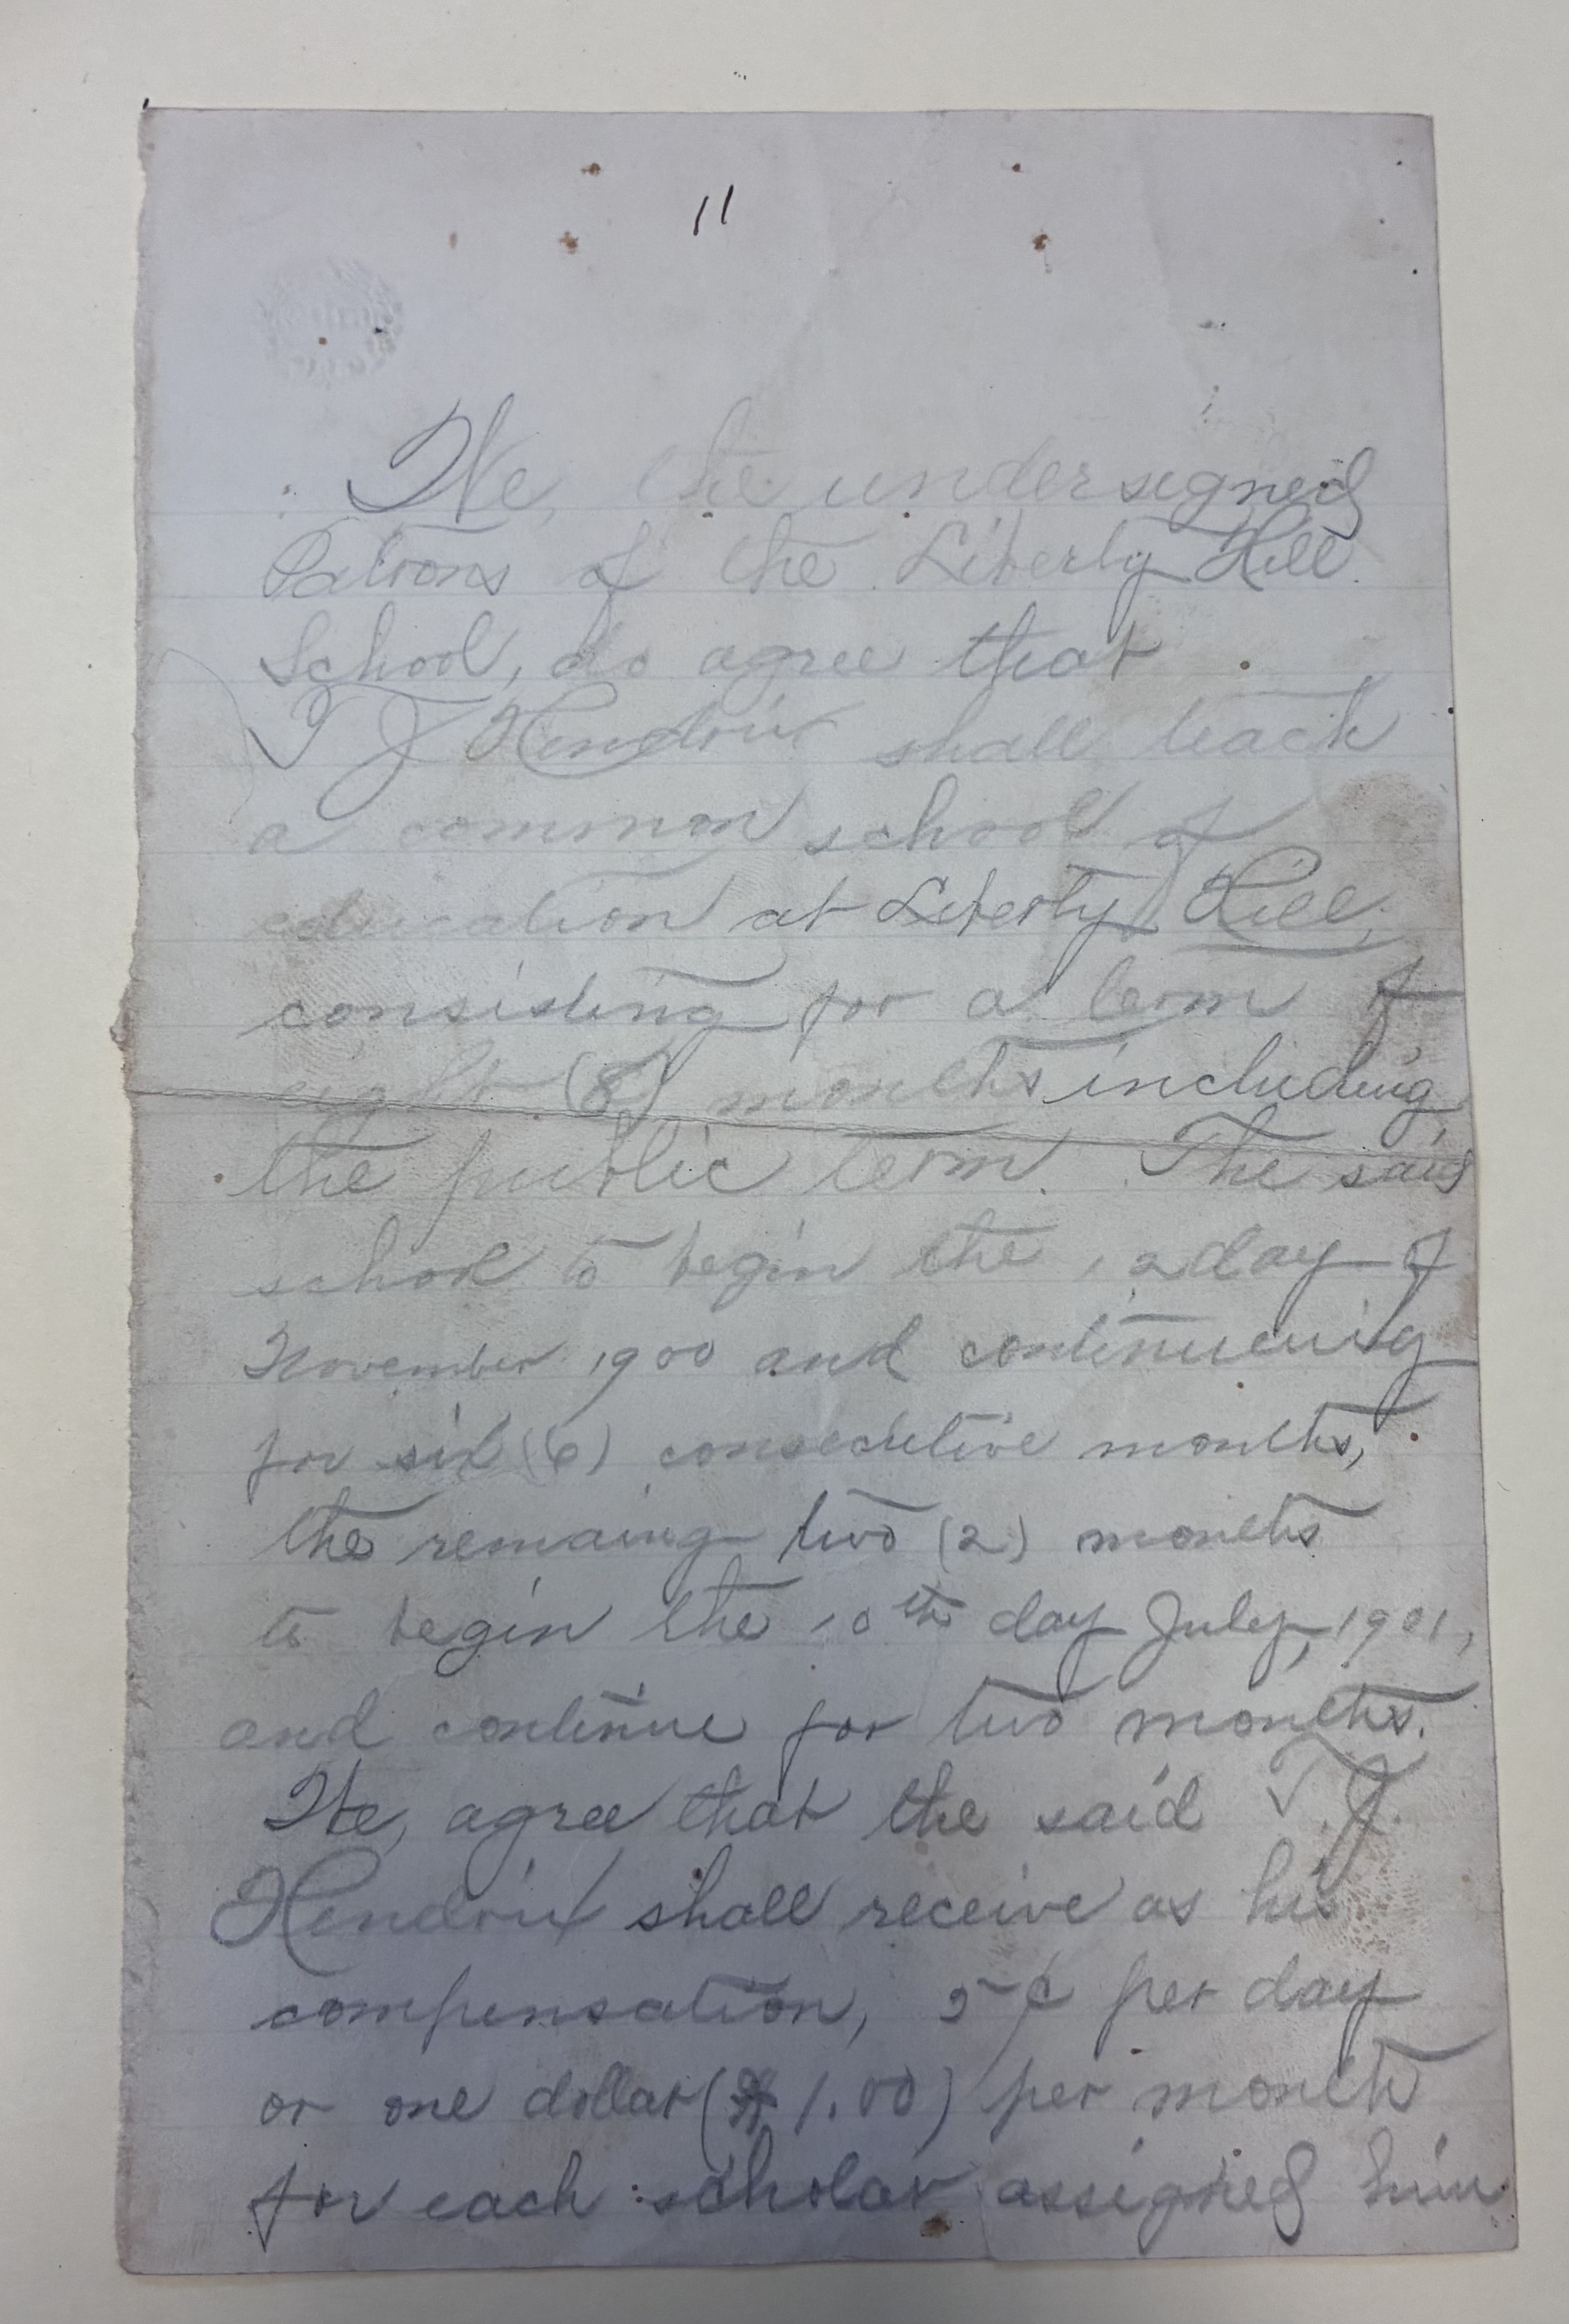 11
We, the undersigned
Patrons of the Liberty Hill
School, do agree that
T J Hendrix shall teach
a common school of
education at Liberty Hill,
consisting for a term of
eight (8) months including
the public term. The said
school to begin the 12 day of
November 1900 and continueing
for six (6) consecutive months,
the remaing two (2) months
to begin the 10th day July, 1901,
and continue for two months.
We, agree that the said T. J.
Hendrix shall receive as his
compensation, 5¢ per day
or one dollar ($1.00) per month
for each scholar assigned him